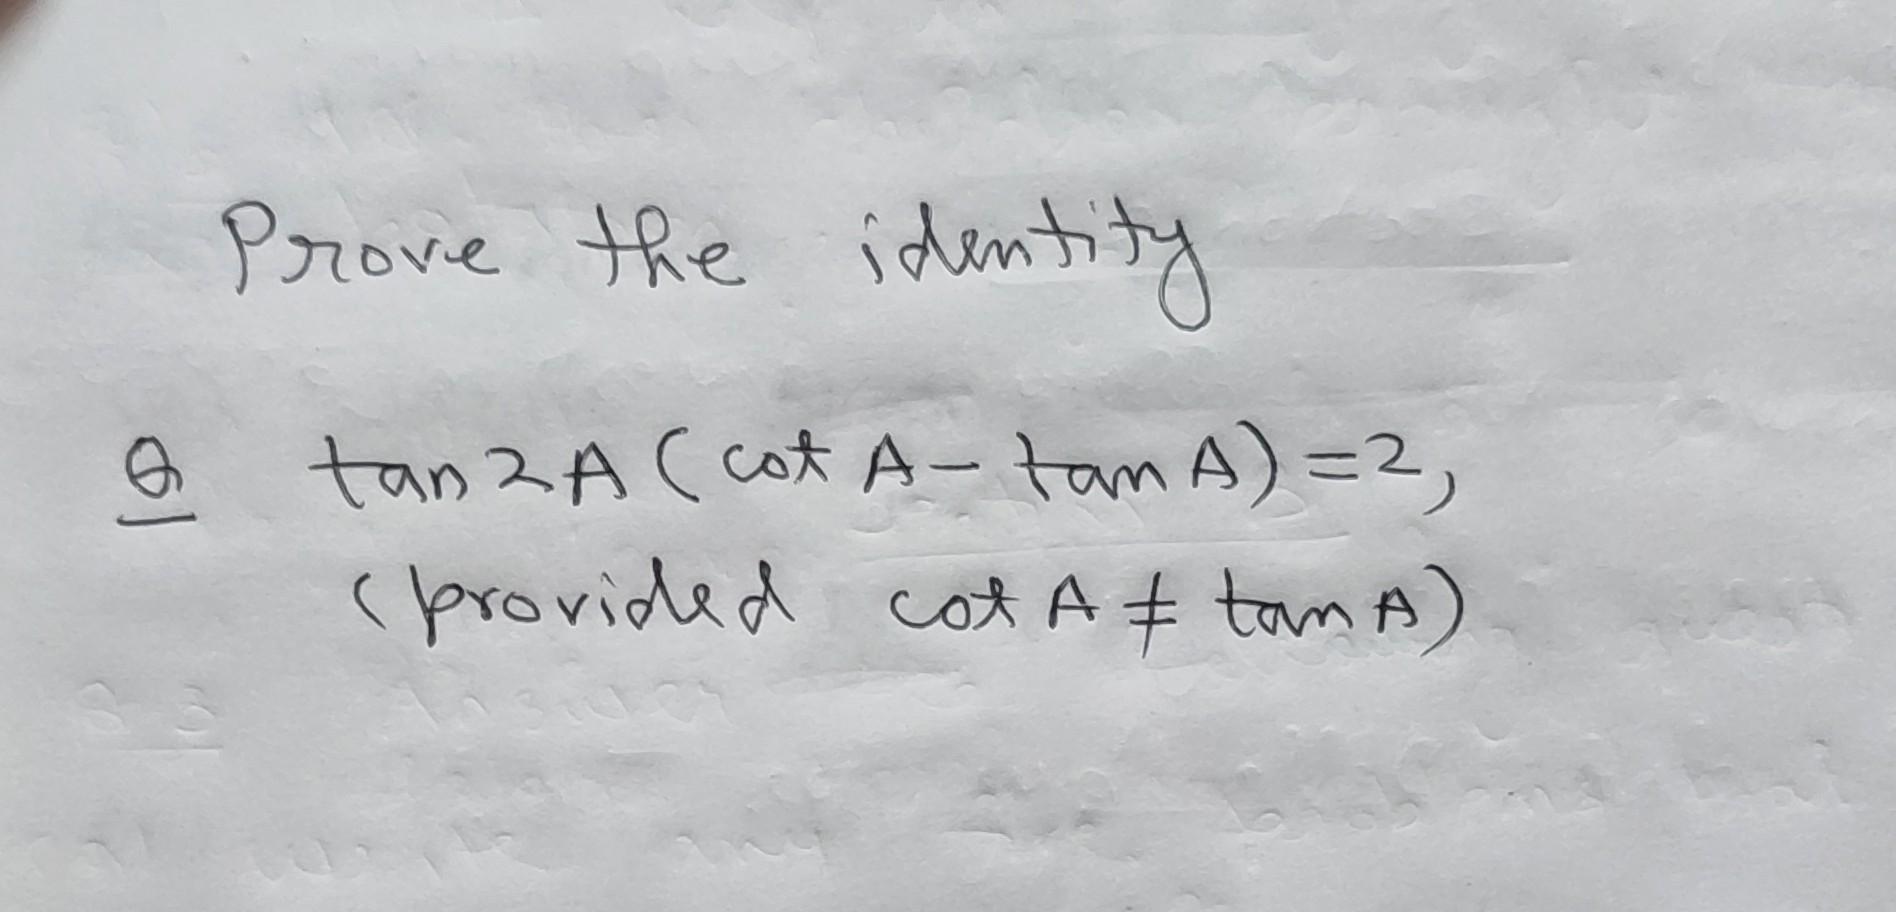 Prove the identity
Q tan 2A (cot A - tan A) = 2,
(provided cot A ≠ tan A)